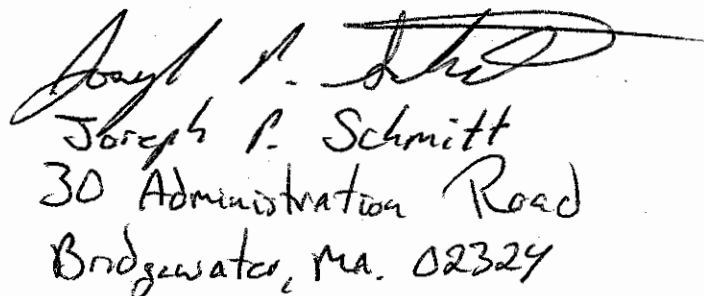 Joseph P. Schmitt
Joseph P. Schmitt
30 Administration Road
Bridgewater, Ma. 02324